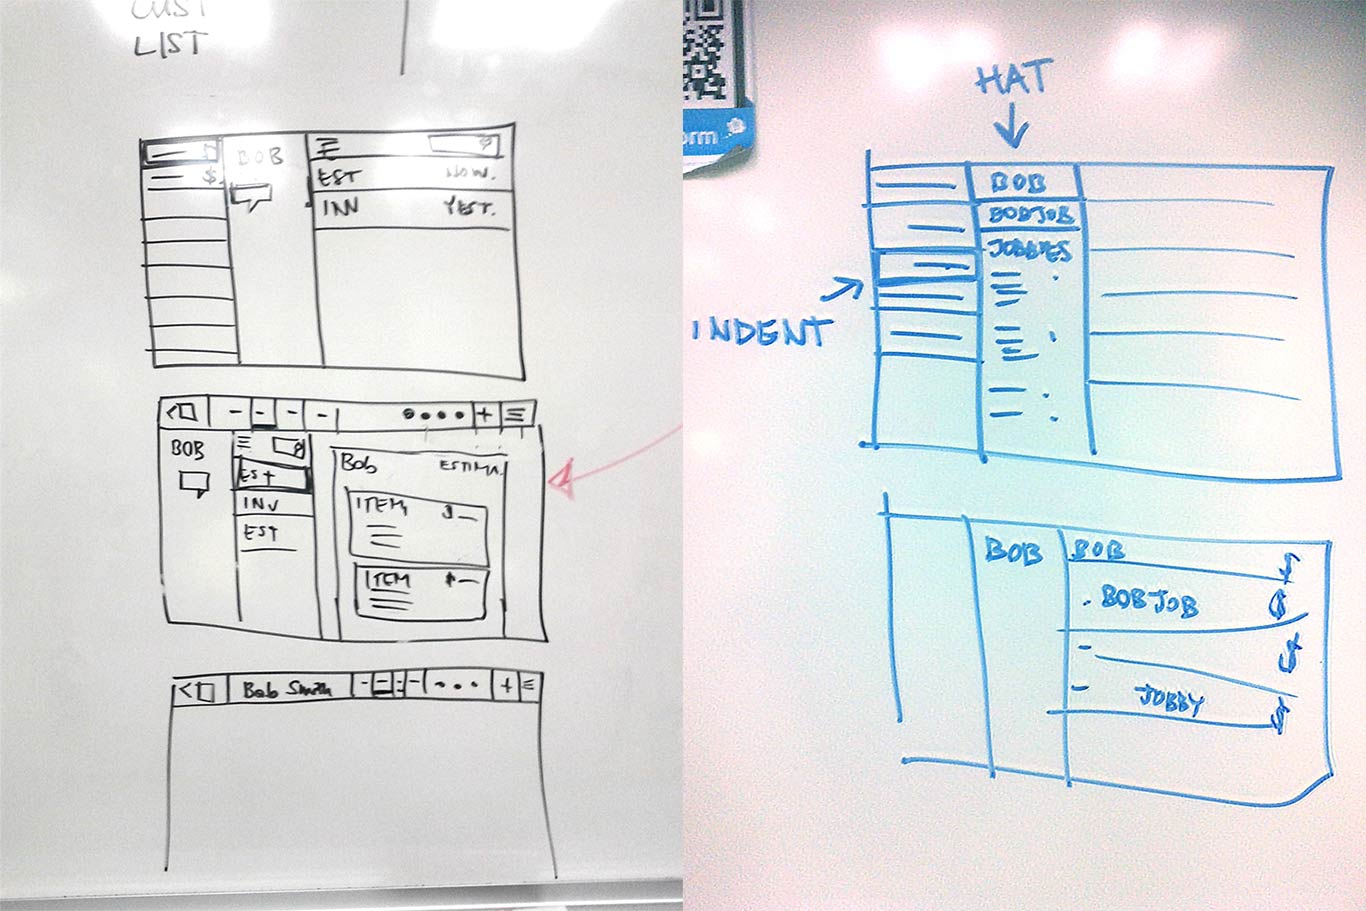 CUST
LIST
BOB
$
EST NOW.
INV YEST.
BOB
EST
INV
EST
Bob ESTIMA.
ITEM, $
ITEM $
Bob Smith
orm
HAT
BOB
BOBJOB
JOBBIES
INDENT
BOB
BOB
BOBJOB
JOBBY